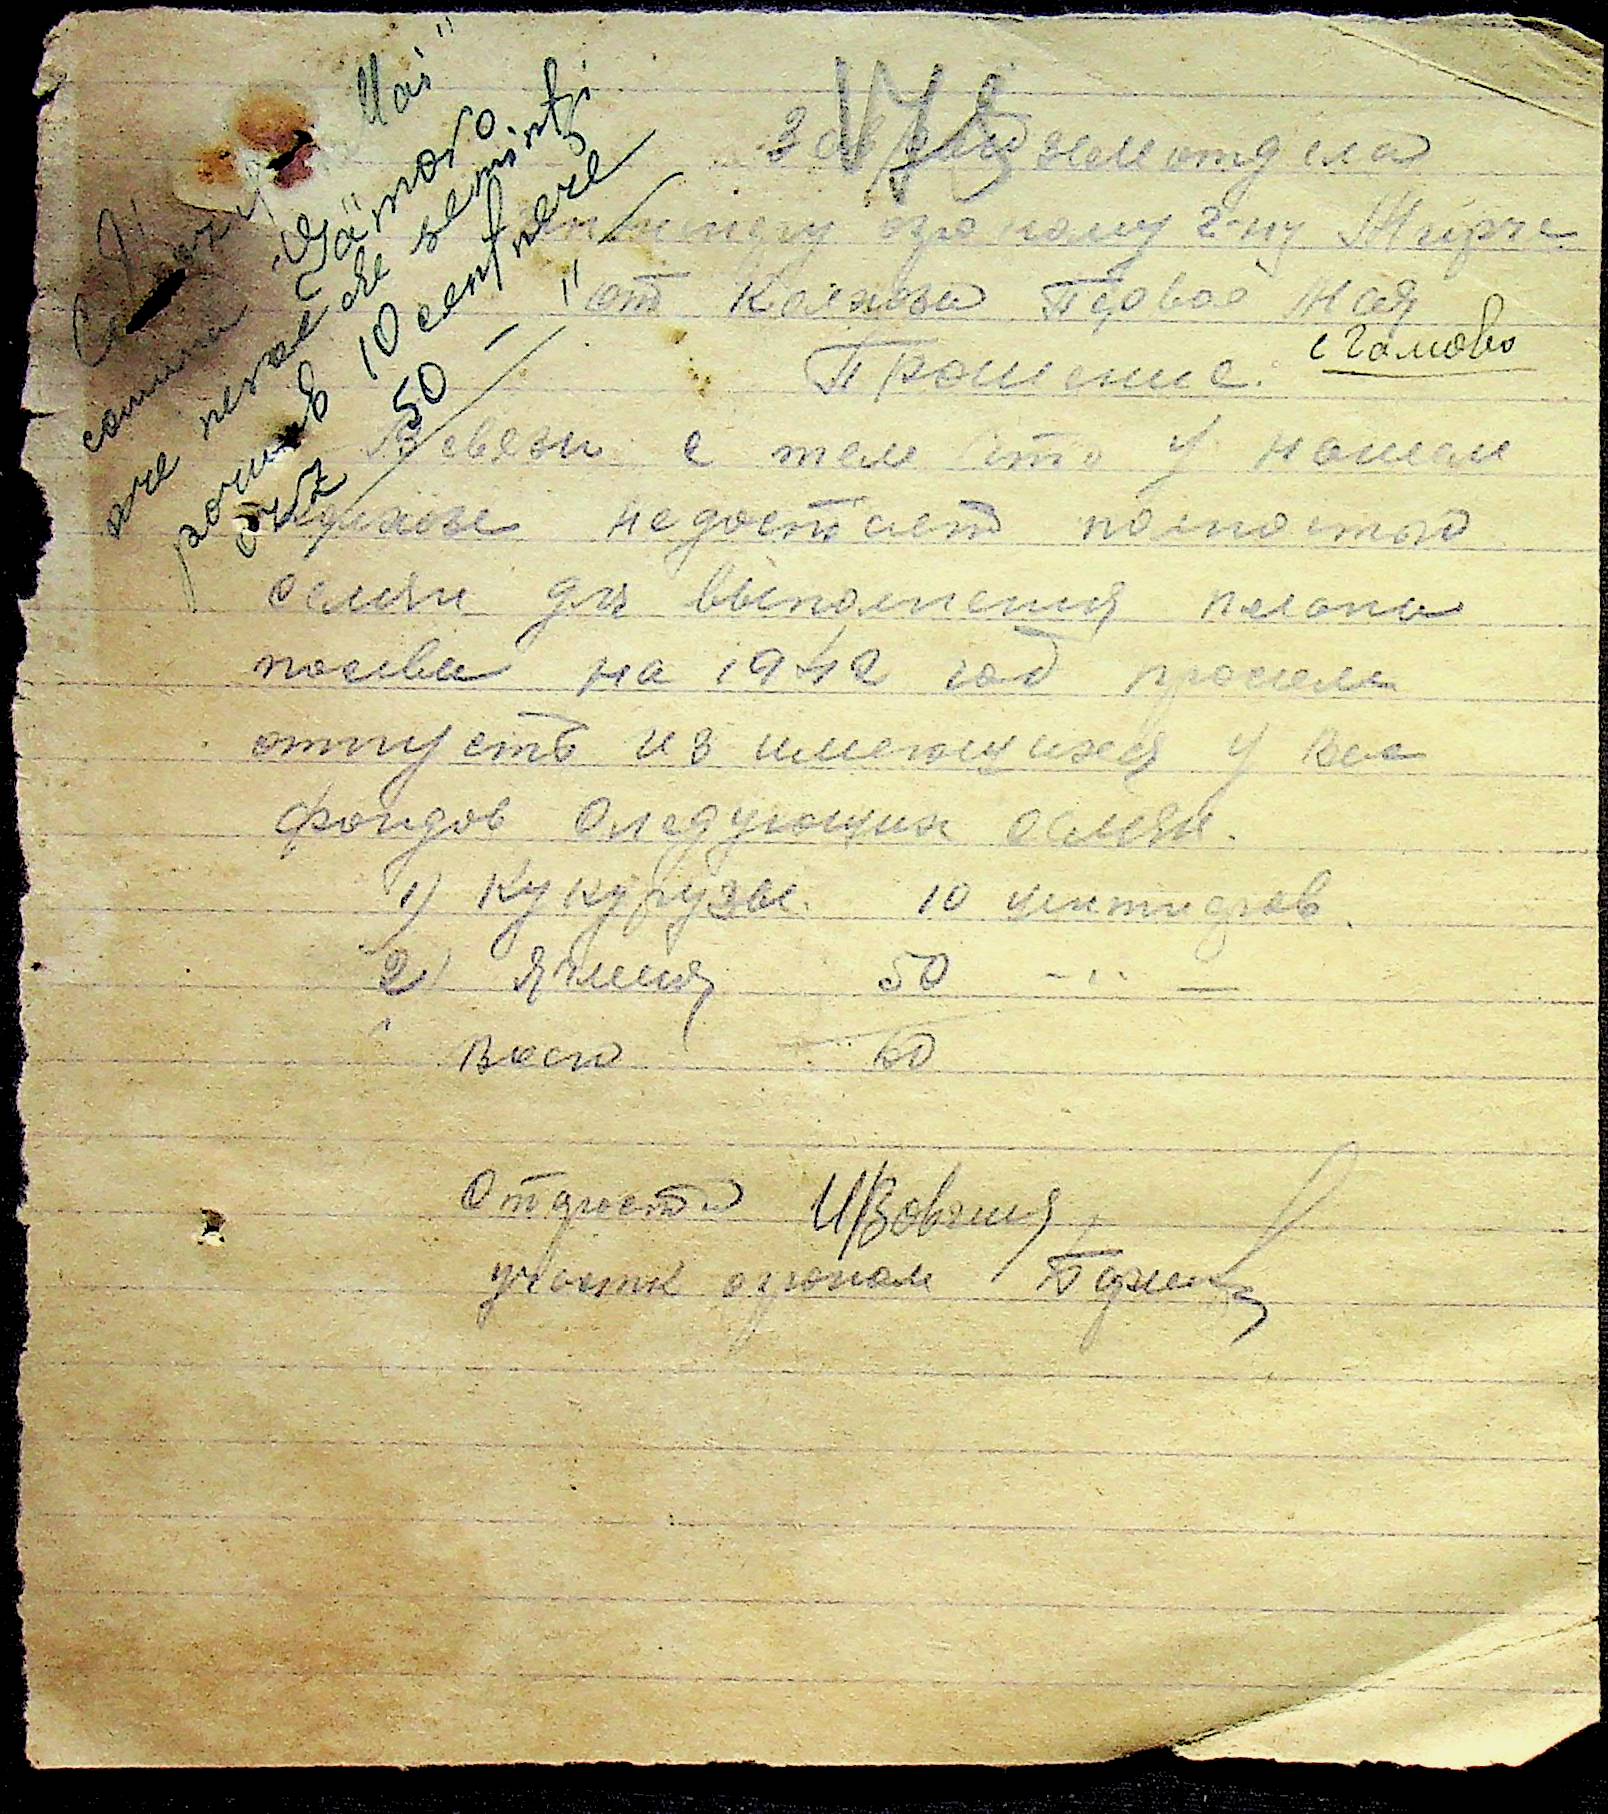 Colhoz 1 Mai"
comuna „Gămovo
are nevoe de seminți
porumb 10 centnere
orz 50 — " —
Зав земотдела
агроному г-ну
от Колхоза Первое Мая
с Гамово
Прошение.
В связи с тем что у нашем
колхозе недостает полностью
семян для выполнения плана
посева на 1942 год просим
отпусть из имеющихся у Вас
фондов следующих семян.
1) Кукурузы. 10 центнеров.
2) Ячменя 50 — " —
Всего 60
Староста
участк агроном